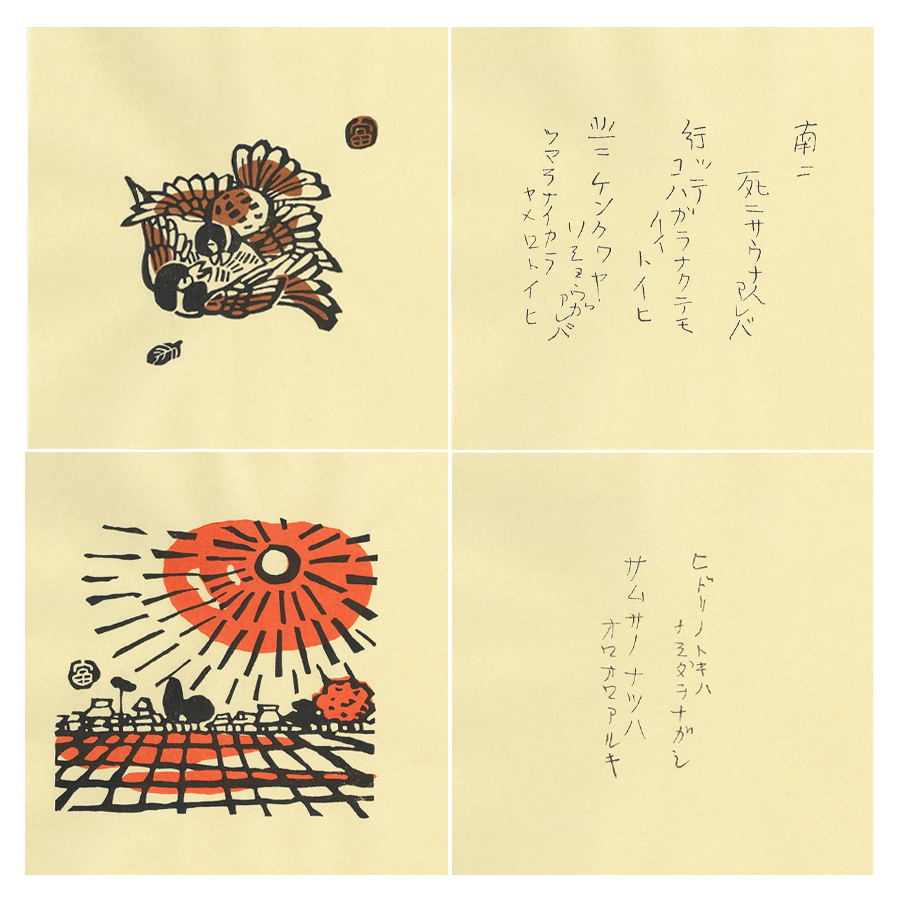 南ニ
死ニサウナ人アレバ
行ッテコハガラナクテモ
イイトイヒ
北ニケンクワヤ
ソショウガアレバ
ツマラナイカラ
ヤメロトイヒ
ヒドリノトキハ
ナミダヲナガシ
サムサノナツハ
オロオロアルキ